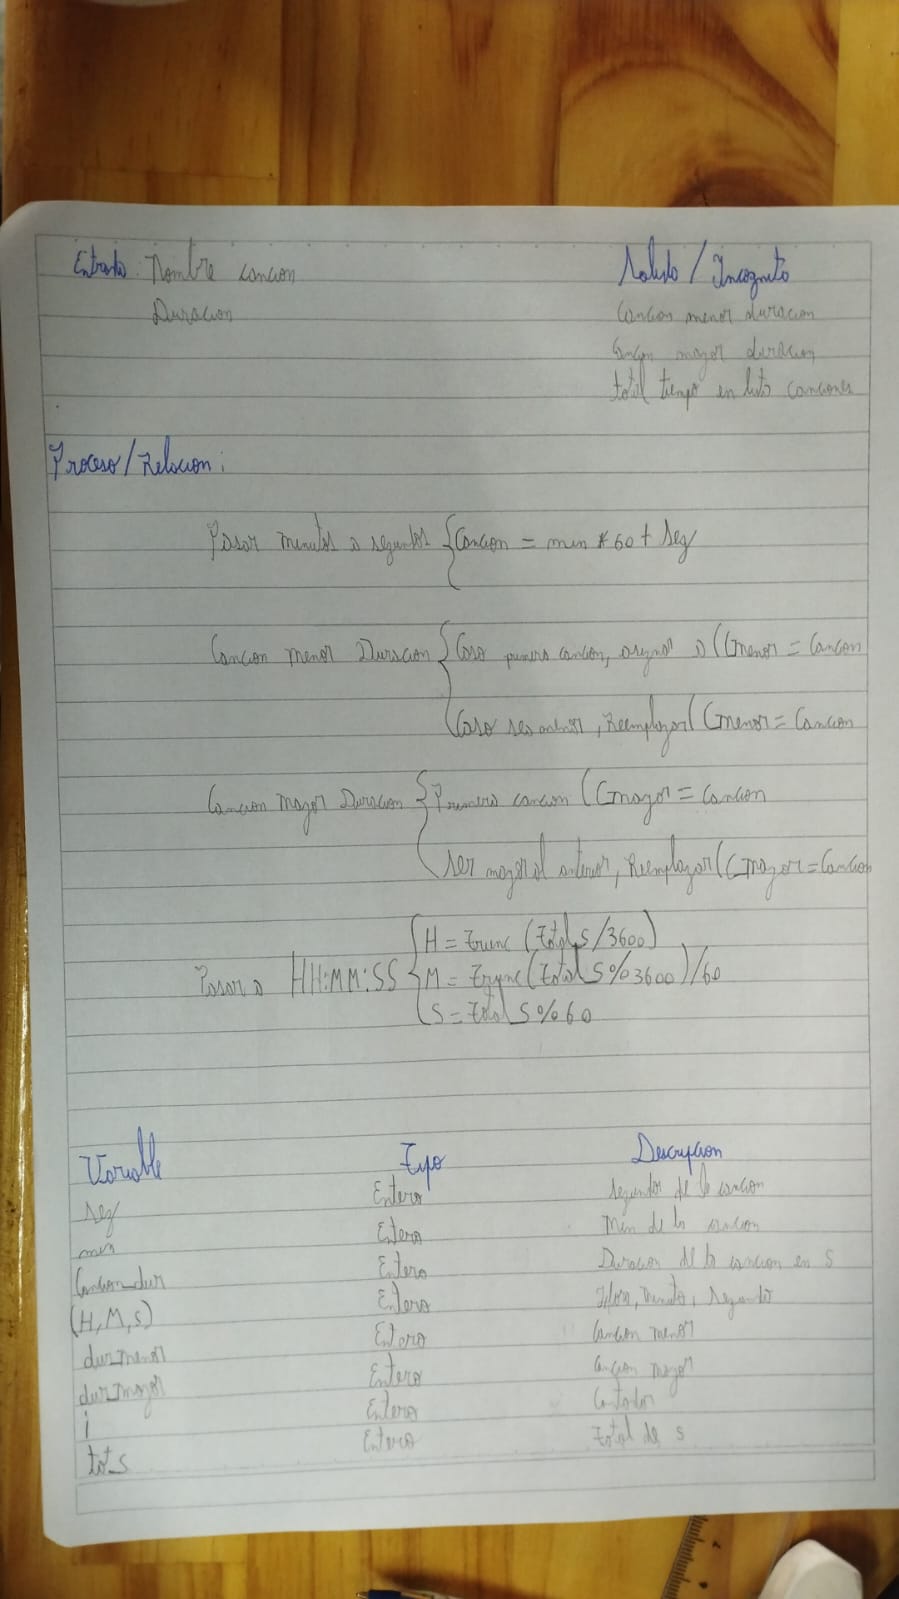 Entrada: Nombre cancion
Salida / Incognita
Duracion
Cancion menor duracion
Cancion mayor duracion
total tiempo en lista canciones
Proceso/Relacion:
Pasar minutos a segundos { Cancion = min * 60 + seg
Cancion menor Duracion { Caso primera cancion, asignar a (Cmenor = Cancion
Caso sea menor, Reemplazar (Cmenor = Cancion
Cancion mayor Duracion { Primera cancion (Cmayor = Cancion
ser mayor al anterior, Reemplazar (Cmayor = Cancion
H = Trunc (Total s/3600)
Pasar a HH:MM:SS { M = Trunc (Total S%3600)/60
S = Total S%60
Variable Tipo Descripcion
seg Entero segundos de la cancion
min Entero Min de la cancion
Cancion_dur Entero Duracion de la cancion en s
(H,M,s) Entero Hora, Minuto, Segundo
dur_menor Entero Cancion menor
dur_mayor Entero Cancion mayor
i Entero Contador
tot_s Entero total de s